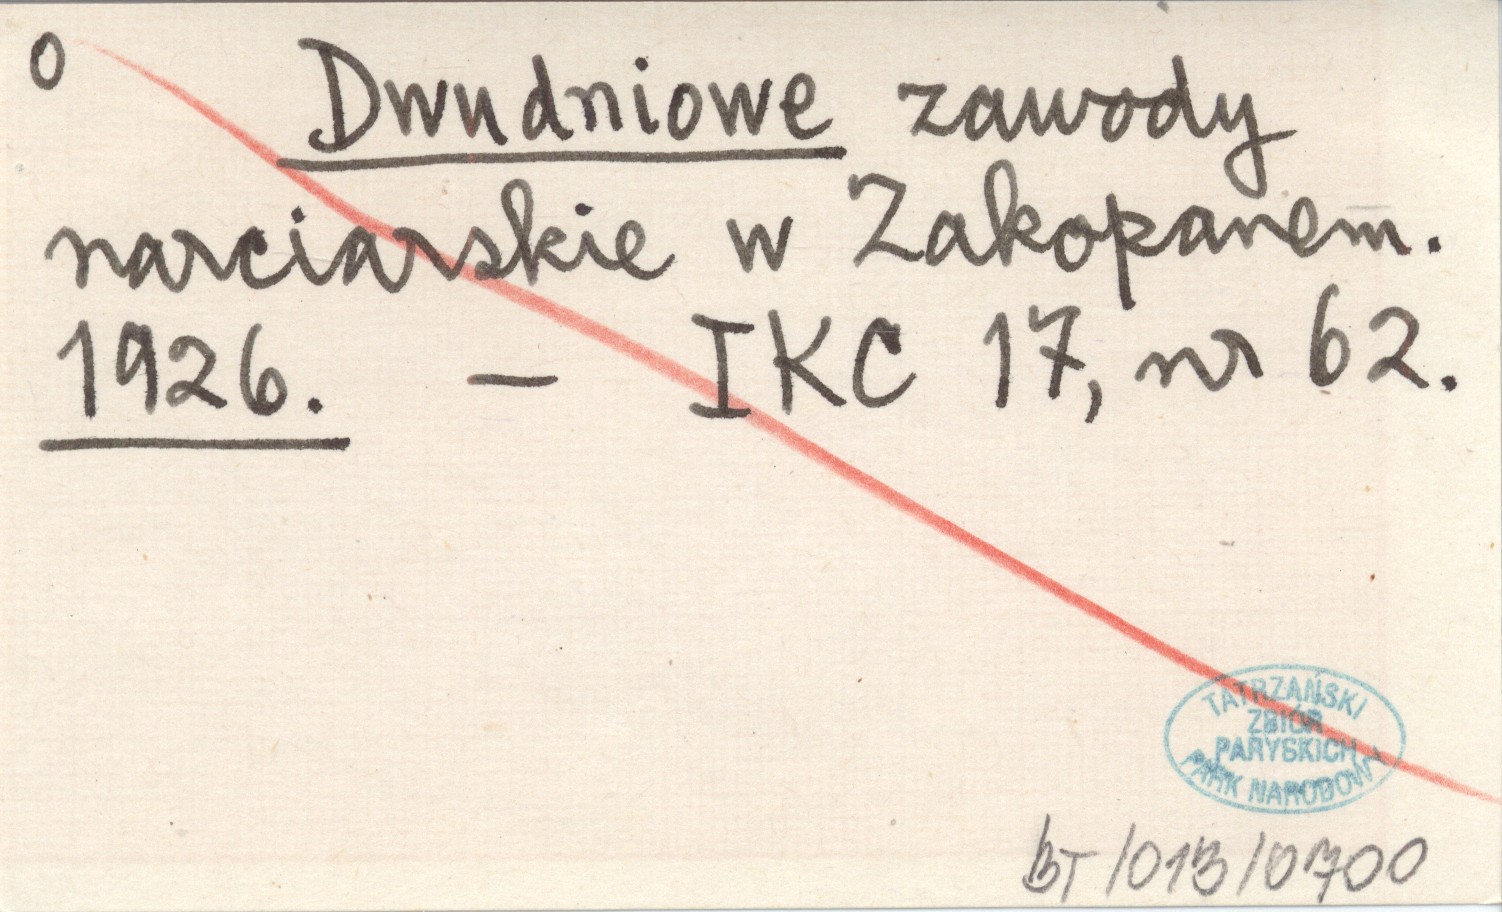 0 Dwudniowe zawody
narciarskie w Zakopanem.
1926. – IKC 17, nr 62.
TATRZAŃSKI
ZBIÓR
PARYSKICH
PARK NARODOWY
BT/013/0700